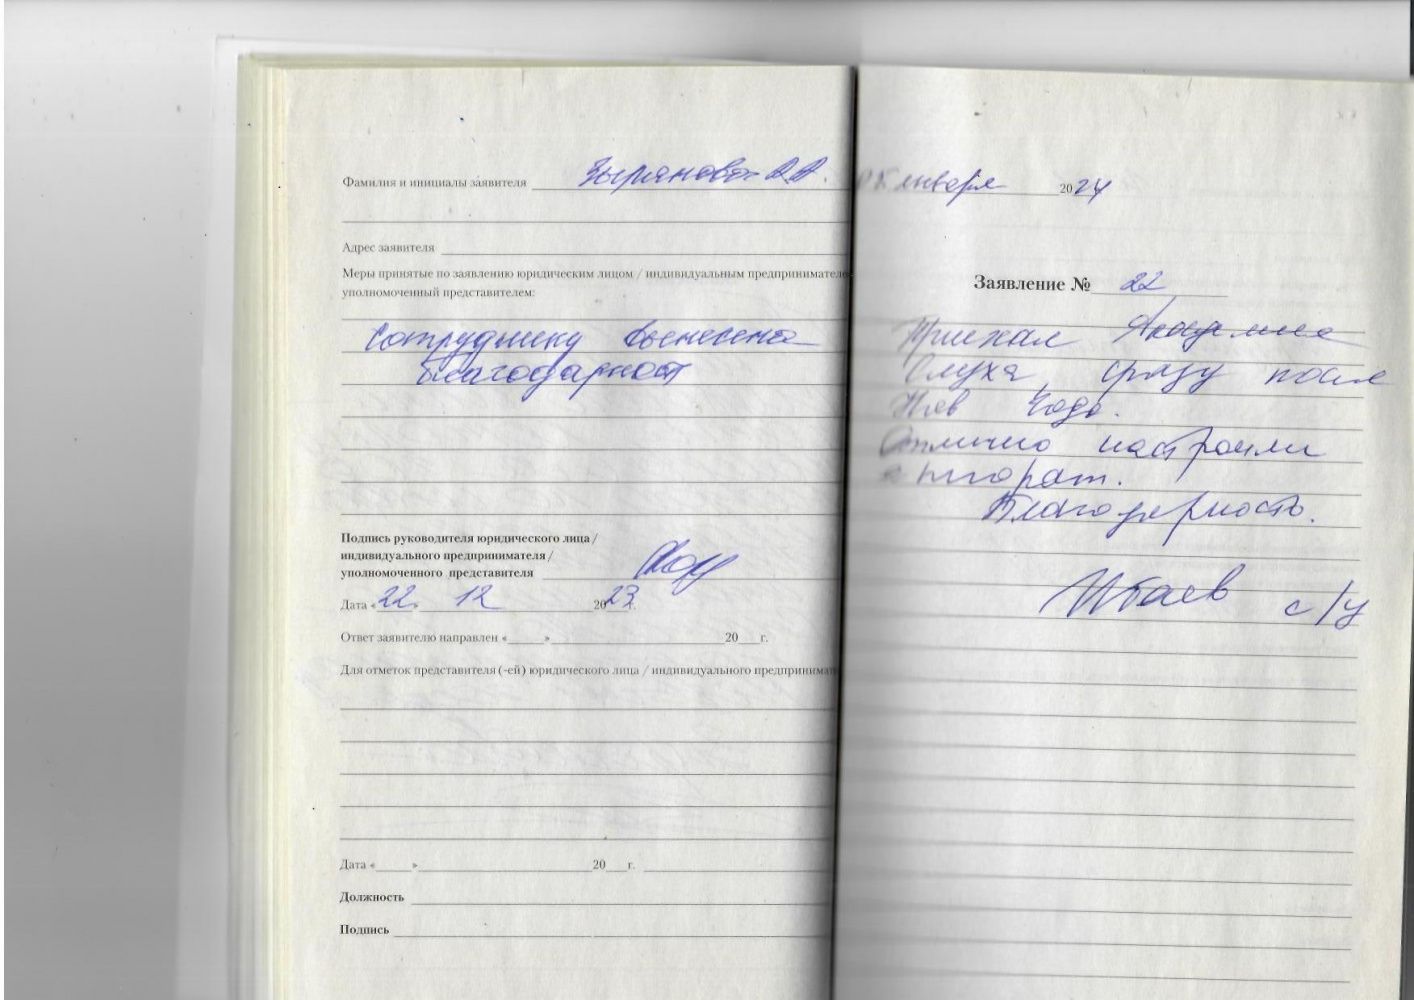 Фамилия и инициалы заявителя Зырянова
Адрес заявителя
Меры принятые по заявлению юридическим лицом / индивидуальным предпринимателе
уполномоченный представителем:
сотруднику вынесена
благодарност
Подпись руководителя юридического лица /
индивидуального предпринимателя /
уполномоченного представителя
Дата «22» 12 2023 г.
Ответ заявителю направлен «    »    20    г.
Для отметок представителя (-ей) юридического лица / индивидуального предпринимат
Дата «    »    20    г.
Должность
Подпись
января 2024
Заявление № 22
Приехал Академия
Слуха, сразу после
Нов Года.
Отлично настроили
аппарат.
Благодарность.
с/у